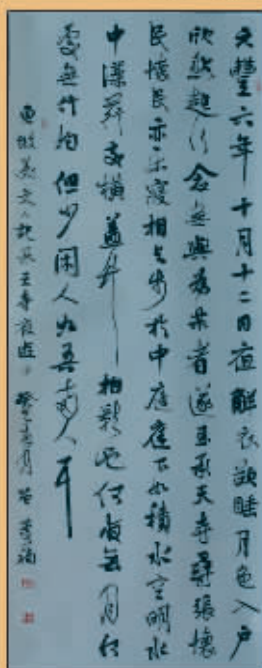 元豐六年十月十二日夜解衣欲睡月色入戶
欣然起行念無與為樂者遂至承天寺尋張懷
民懷民亦未寢相與步於中庭庭下如積水空明水
中藻荇交橫蓋竹柏影也何夜無月何
處無竹柏但少閑人如吾兩人耳
東坡美文記承天寺夜遊